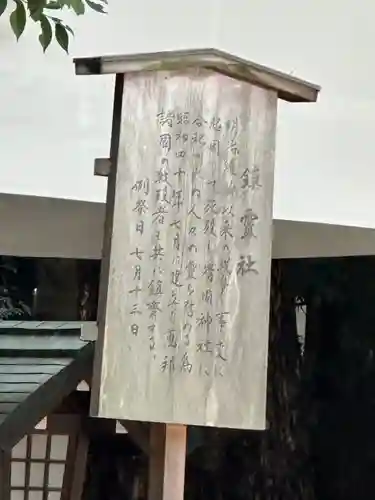 鎮霊社
明治維新以来の戦争・事変に
起因して死歿し靖国神社に
合祀されぬ人々の霊を慰める為
昭和四十年七月に建立し萬邦
諸国の戦歿者も共に鎮斎する
例祭日 七月十三日